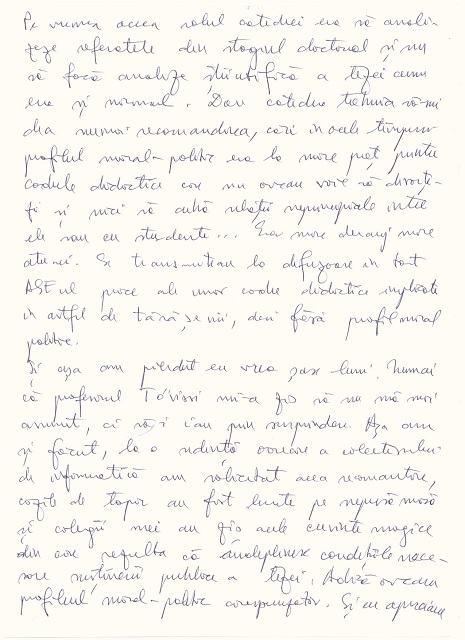 Pe vremea aceea rolul catedrei era să anali-
zeze referatele din stagiul doctoral și nu
să facă analize științifică a tezei cum
era și normal. Dar catedra trebuia să-mi
dea numai recomandarea, căci în acele timpuri
profilul moral-politic era la mare preț, pentru
cadrele didactice care nu aveau voie să divorțe-
ze și nici să aibă relații neprincipiale între
ele sau cu studente... Era mare deranj mare
atunci. Se transmiteau la difuzoare în tot
ASE-ul procese ale unor cadre didactice implicate
în astfel de, deci fără profil moral
politic.
Și așa am pierdut eu vreo șase luni. Numai
că profesorul mi-a zis să nu mă mai
asum, ci să-i iau prin surprindere. Așa am
și făcut, la o ședință oarecare a colectivului
de informatică am solicitat acea recomandare,
cozile de topor au fost luate pe nepusă masă
și colegii mei au zis acele cuvinte magice
din care rezulta că îndeplinesc condițiile nece-
sare susținerii publice a tezei. Adică aveam
profilul moral-politic corespunzător. Și eu